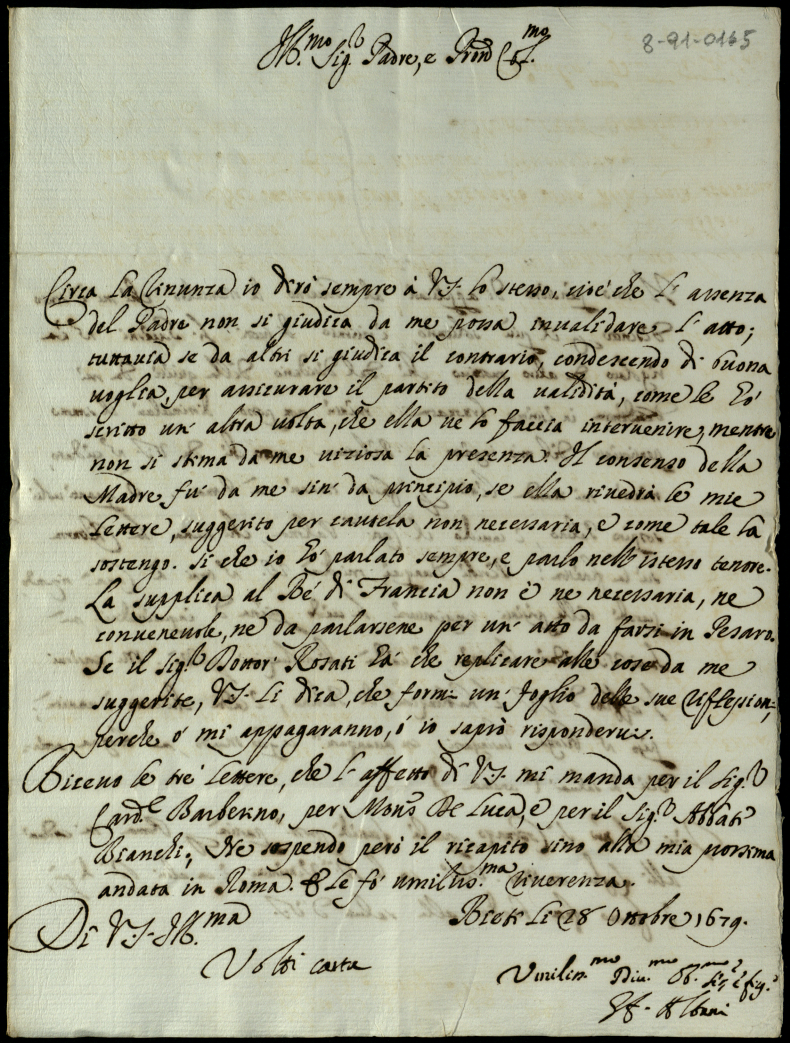 8-91-0165
Ill.mo Sig.r Padre, e Pron Col.mo
Circa la rinunza io dirò sempre à V.S. lo stesso, cioè che l'assenza
del Padre non si giudica da me possa invalidare l'atto;
tuttavia se da altri si giudica il contrario, condescendo di buona
voglia, per assicurare il partito della validità, come le hò
scritto un'altra volta, che ella ve lo faccia intervenire, mentre
non si stima da me viziosa la presenza. Il consenso della
Madre fù da me sin' da principio, se ella rivedrà le mie
lettere, suggerito per cautela non necessaria, e come tale la
sostengo. Si che io hò parlato sempre, e parlo nell'istesso tenore.
La supplica al Rè di Francia non è ne necessaria, ne
convenevole, ne da parlarsene per un'atto da farsi in Pesaro.
Se il Sig.r Dottor Rosati hà che replicare alle cose da me
suggerite, V.S. li dica, che formi un'foglio delle sue riflessioni,
perche ó mi appagaranno, ó io saprò rispondervi.
Ricevo le tre lettere, che l'affetto di V.S. mi manda per il Sig.r
Card.le Barberino, per Mons. De Luca, e per il Sig.r Abbate
Bianchi; Ne sospendo però il ricapito sino alla mia prossima
andata in Roma. E le fò umiliss.ma riverenza.
Rieti li 28 Ottobre 1679.
Di V.S. Ill.ma
Volti carta
Umiliss.mo Div.mo Obb.mo Ser.e e fig.o
Albani